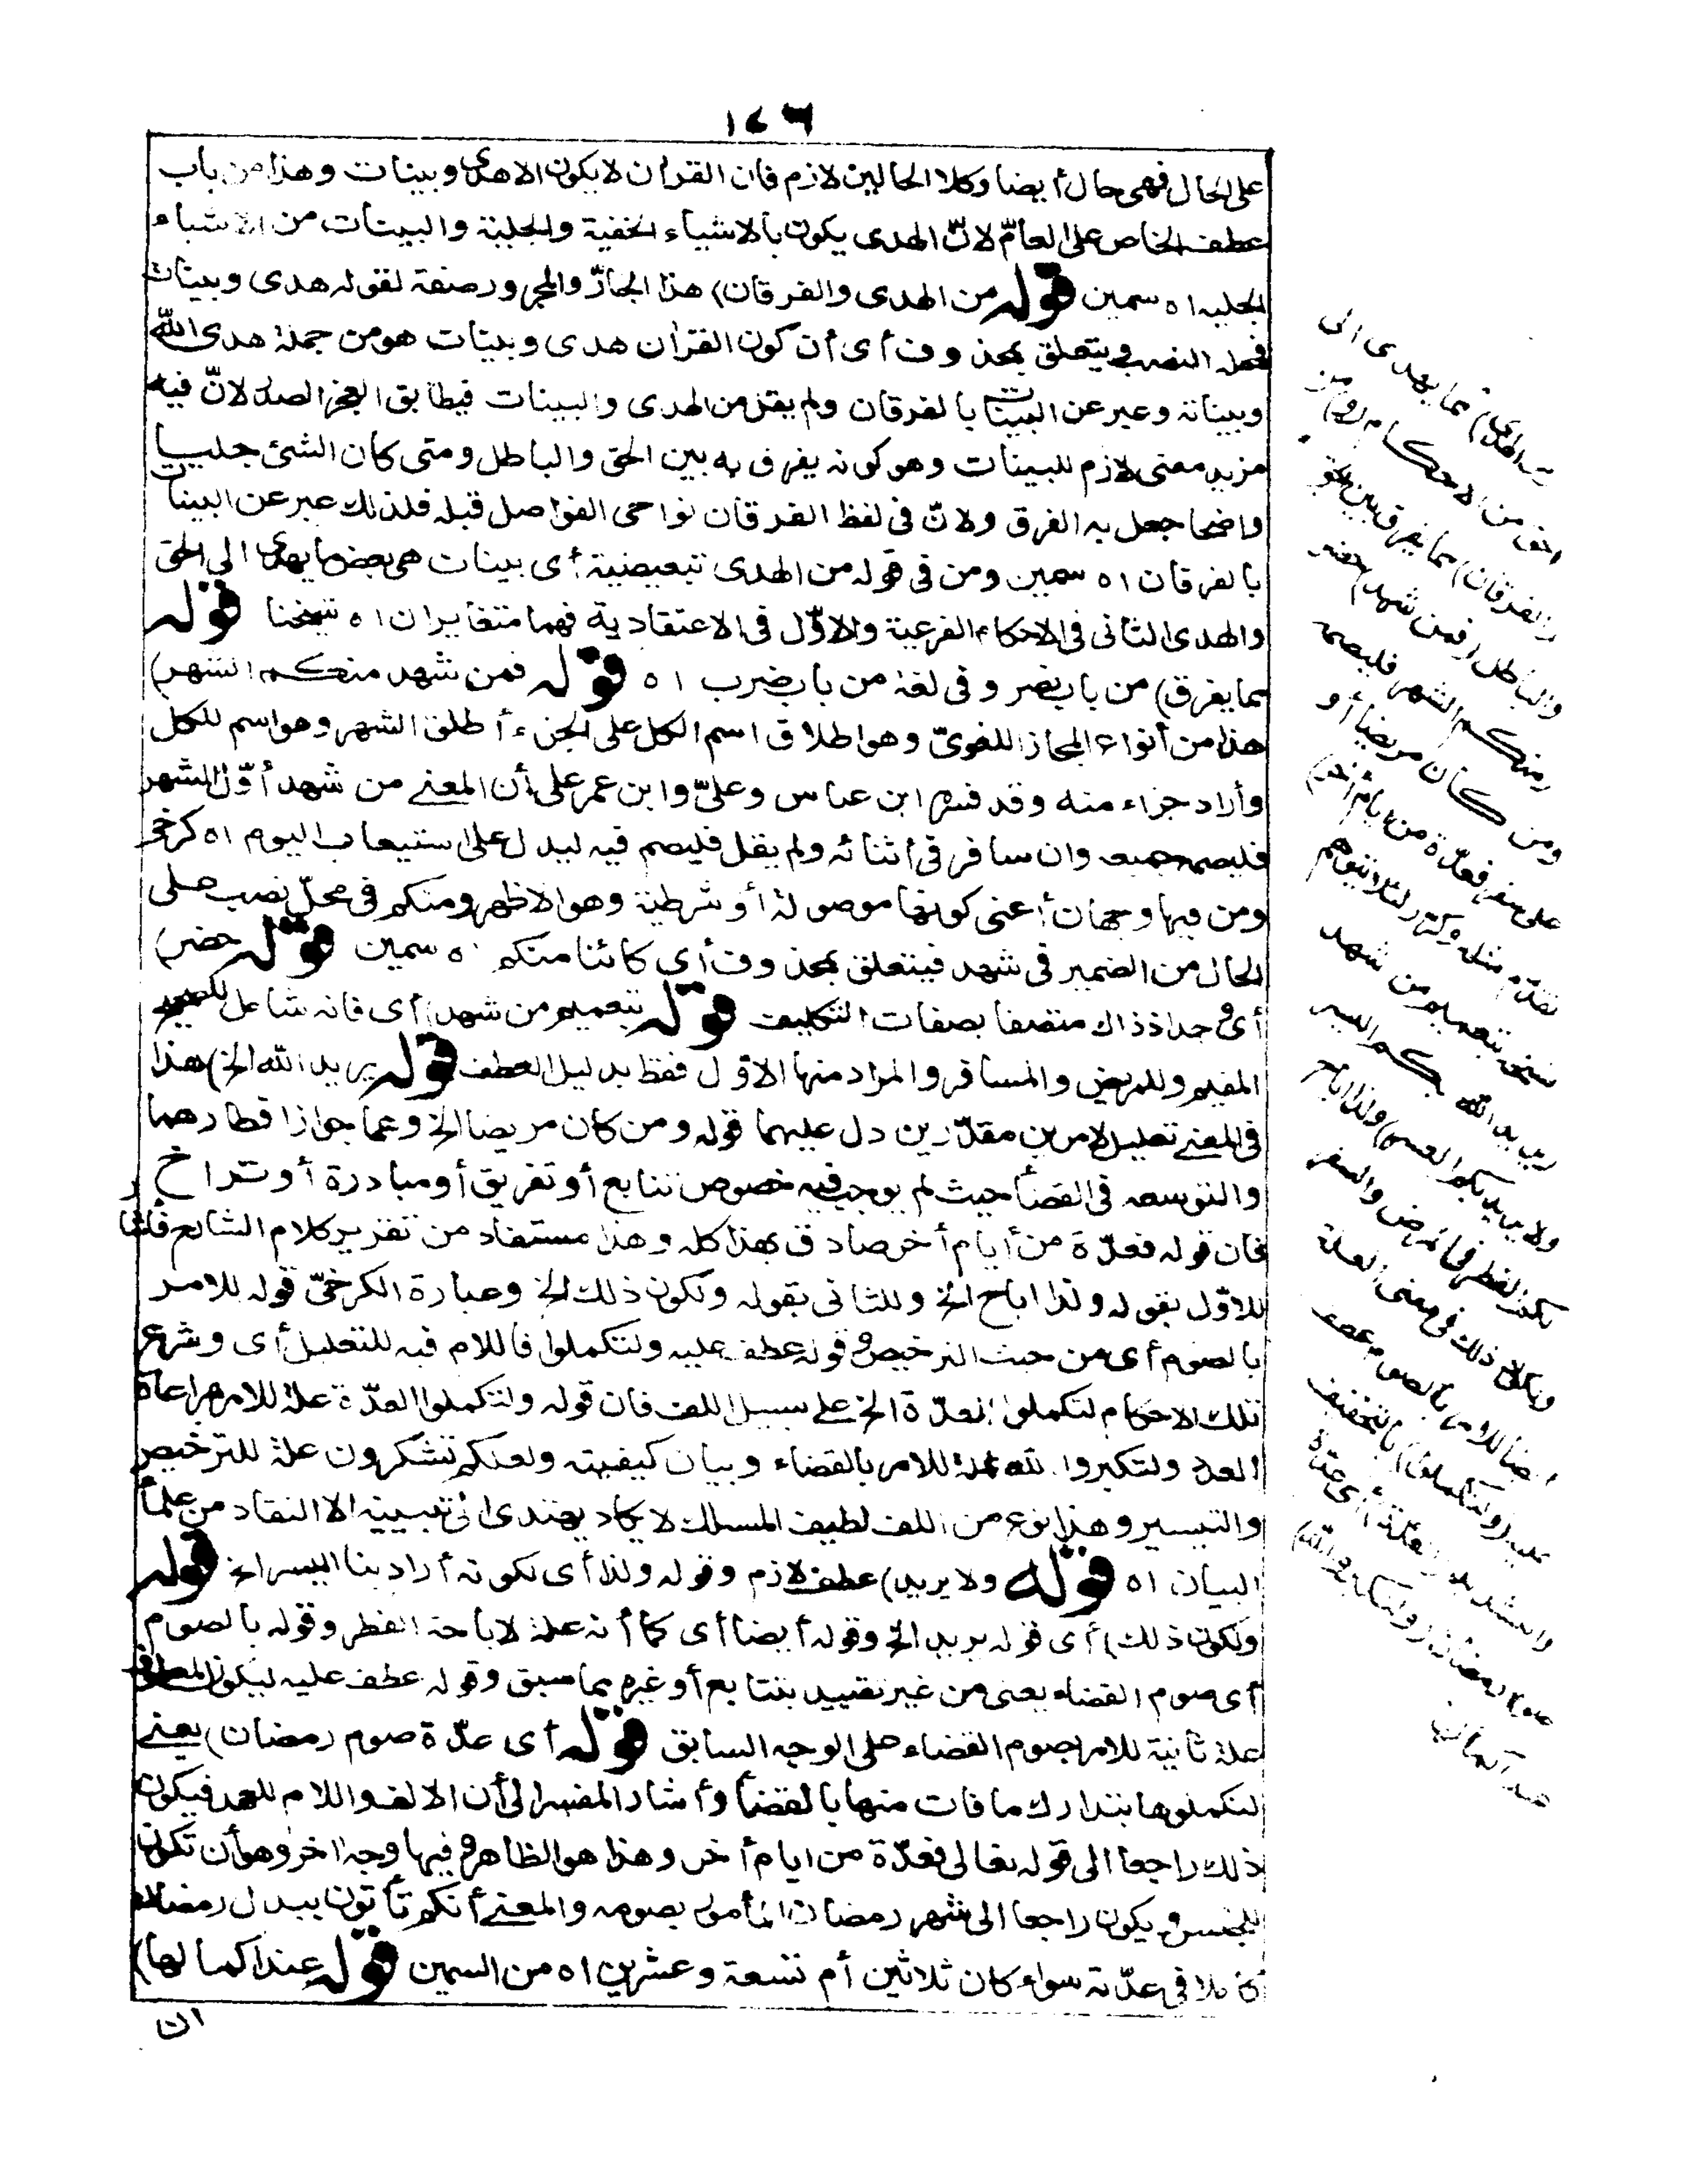 ١٤٦
على الحال فهى حال أيضا وكلا الحالين لازم فان القرآن لا يكون الا هدى وبينات وهذا من باب
عطف الخاص على العامّ لانّ الهدى يكون بالاشياء الخفية والجلية والبينات من الاشياء
الجلية اه سمين قوله من الهدى والفرقان) هذا الجارّ والمجرور صفة لقوله هدى وبينات
فمحله النصب ويتعلق بمحذوف أى أن كون القرآن هدى وبينات هو من جملة هدى الله
وبيناته وعبر عن البينات بالفرقان ولم يقل من الهدى والبينات فيطابق العجز الصدر لانّ فيه
مزيد معنى لازم للبينات وهو كونه يفرق به بين الحق والباطل ومتى كان الشئ جليا
واضحا جعل به الفرق ولانّ فى لفظ الفرقان تواخى الفواصل قبله فلذلك عبر عن البينات
بالفرقان اه سمين ومن فى قوله من الهدى تبعيضية أى بينات هى بعض ما يهدى الى الحق
والهدى الثانى فى الاحكام الفرعية والاوّل فى الاعتقادية فهما متغايران اه شيخنا قوله
مما يفرق) من باب نصر وفى لغة من باب ضرب اه قوله فمن شهد منكم الشهر)
هذا من أنواع المجاز اللغوىّ وهو اطلاق اسم الكل على الجزء أطلق الشهر وهو اسم للكل
وأراد جزاء منه وقد فسره ابن عباس وعلىّ وابن عمر على أن المعنى من شهد أوّل الشهر
فليصم جميعه وان سافر فى أثنائه ولم يقل فليصم فيه ليدل على استيعاب اليوم اه كرخى
ومن فيها وجهان أعنى كونها موصولة أو شرطية وهو الاظهر ومنكم فى محلّ نصب على
الحال من الضمير فى شهد فيتعلق بمحذوف أى كائنا منكم اه سمين قوله حضر)
أى وجد اذ ذاك متصفا بصفات التكليف قوله بتعميم من شهد) أى فانه شامل للصحيح
المقيم وللمريض والمسافر والمراد منها الاوّل فقط بدليل العطف قوله يريد الله الخ) هذا
فى المعنى تعليل لامرين مقدّرين دل عليهما قوله ومن كان مريضا الخ وهما جواز افطارهما
والتوسعه فى القضأ حيث لم يوجب فيه خصوص تتابع أو تفريق أو مبادرة أو تراخ
فان قوله فعدّة من أيام أخر صادق بهذا كله وهذا مستفاد من تقرير كلام الشارح فأشار
للاوّل بقوله ولذا اباح الخ وللثانى بقوله ولكون ذلك الخ وعبارة الكرخىّ قوله للامر
بالصوم أى من حيث الترخيص وقوله عطف عليه ولتكملوا فاللام فيه للتعليل أى وشرع
تلك الاحكام لتكملوا العدّة الخ على سبيل اللف فان قوله ولتكملوا العدّة علة للامر بمراعاة
العدة ولتكبروا الله علة للامر بالقضاء وبيان كيفيته ولعلكم تشكرون علة للترخيص
والتيسير وهذا نوع من اللف لطيف المسلك لا يكاد يهتدى الى تبيينه الا النقاد من علمأ
البيان اه قوله ولا يريد) عطف لازم وقوله ولذا أى لكونه أراد بنا اليسر الخ قوله
ولكون ذلك) أى قوله يريد الخ وقوله أيضا أى كما أنه علة لاباحة الفطر وقوله بالصوم
أى صوم القضاء يعنى من غير تقييد بتتابع أو غيره مما سبق وقوله عطف عليه ليكون المعطوف
علة ثانية للامر بصوم القضاء على الوجه السابق قوله أى عدّة صوم رمضان) يعنى
لتكملوها بتدارك ما فات منها بالقضأ وأشار المفسر الى أن الالف واللام للعهد فيكون
ذلك راجعا الى قوله تعالى فعدّة من ايام أخر وهذا هو الظاهر وفيها وجه اخر وهو أن تكون
للجنس ويكون راجعا الى شهر رمضان المأمور بصومه والمعنى أنكم تأتون ببدل رمضان
كاملا فى عدّته سواء كان ثلاثين أم تسعة وعشرين اه من السمين قوله عند اكمالها)
من الهدى) مما يهدى الى
الحق من الاحكام (و) من
الفرقان) مما يفرق بين الحق
والباطل (فمن شهد) حضر
(منكم الشهر فليصمه
ومن كان مريضا أو
على سفر فعدّة من أيام أخر)
تقدّم مثله وكرر لئلا يتوهم
نسخه بتعميم من شهد
(يريد الله بكم اليسر
ولا يريد بكم العسر) ولذا اباح
لكم الفطر فى المرض والسفر
ولكون ذلك فى معنى العلة
أيضا للامر بالصوم عطف
عليه (ولتكملوا) بالتخفيف
والتشديد (العدّة) أى عدّة
صوم رمضان (ولتكبروا الله)
عند اكمالها